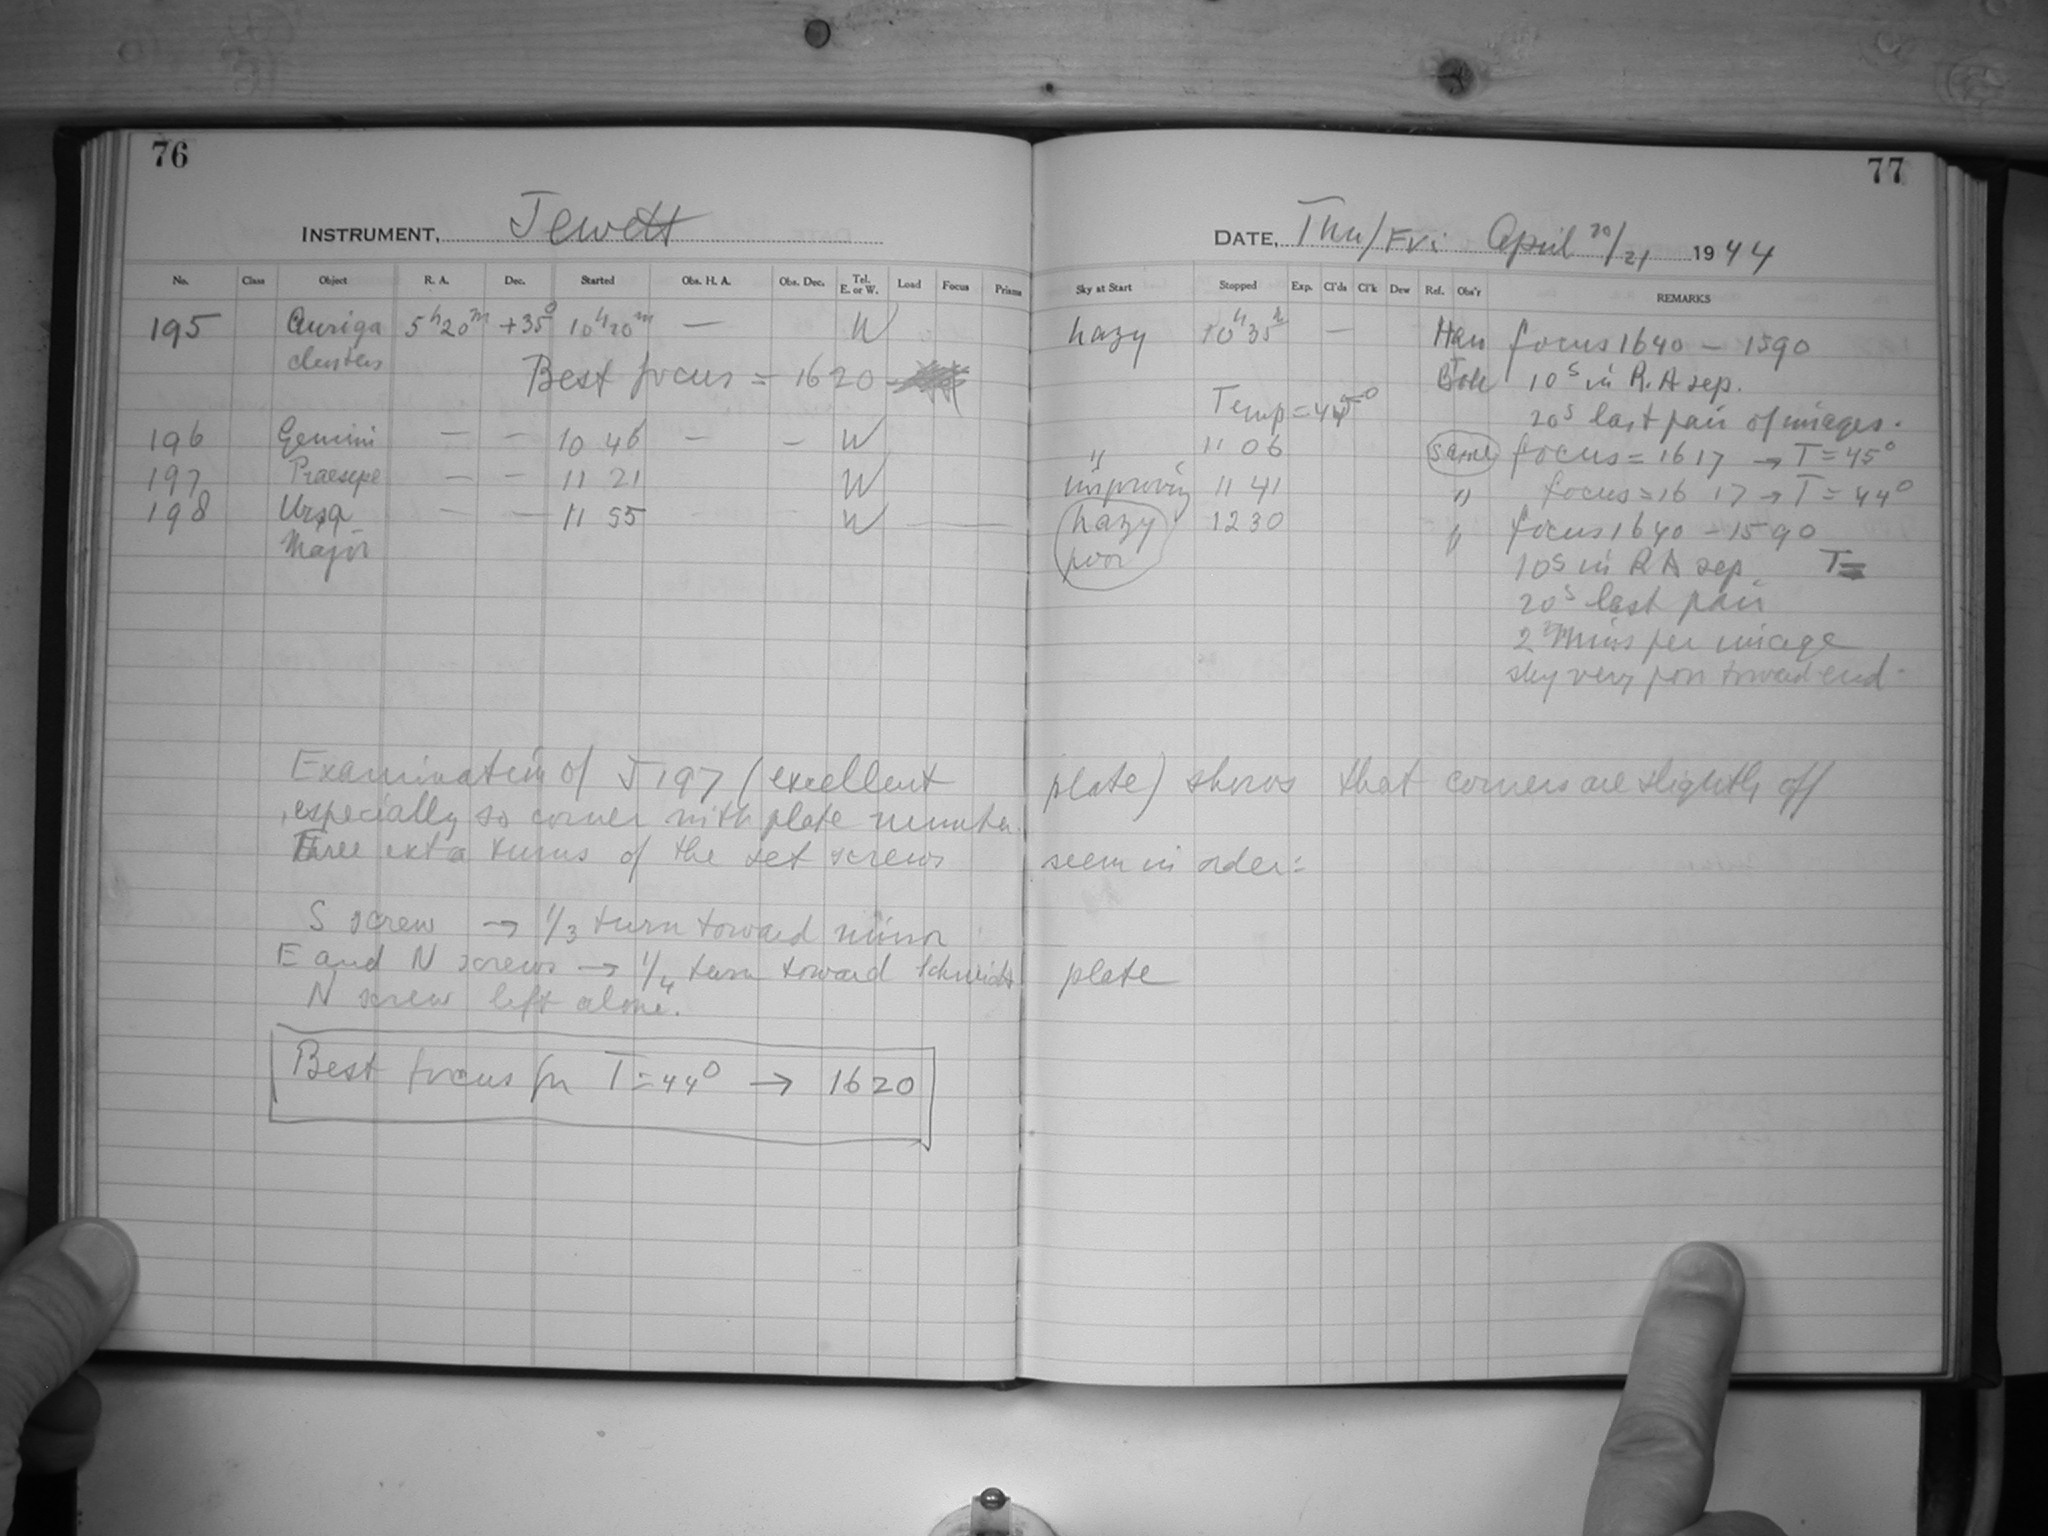 76
INSTRUMENT, Jewett
No. Class Object R. A. Dec. Started Obs. H. A. Obs. Dec. Tel. E. or W. Load Focus Prisms
195 Auriga 5h20m +35° 10h20m — W
clusters
Best focus = 1620
196 Gemini — — 10 46 — — W
197 Praesepe — — 11 21 W
198 Ursa — — 11 55 — — W
Major
Examination of J 197 (excellent
especially so corner with plate number
Three extra turns of the set screws
S screw → 1/3 turn toward mirror
E and N screws → 1/4 turn toward Schmidt
N screw left alone.
Best focus for T = 44° → 1620
77
DATE, Thu/Fri April 20/21 1944
Sky at Start Stopped Exp. Cl'ds Cl'k Dew Ref. Obs'r REMARKS
hazy 10h35 — focus 1640 – 1590
10s in R.A sep.
Temp =
20s last pair of images.
" 11 06 same focus = 1617 → T = 45°
improving 11 41 " focus = 1617 → T = 44°
hazy 12 30 " focus 1640 – 1590
poor 10s in R A sep. T=
20s last pair
2 mins per image
sky very poor toward end.
plate) shows that corners are slightly off
seem in order:
plate